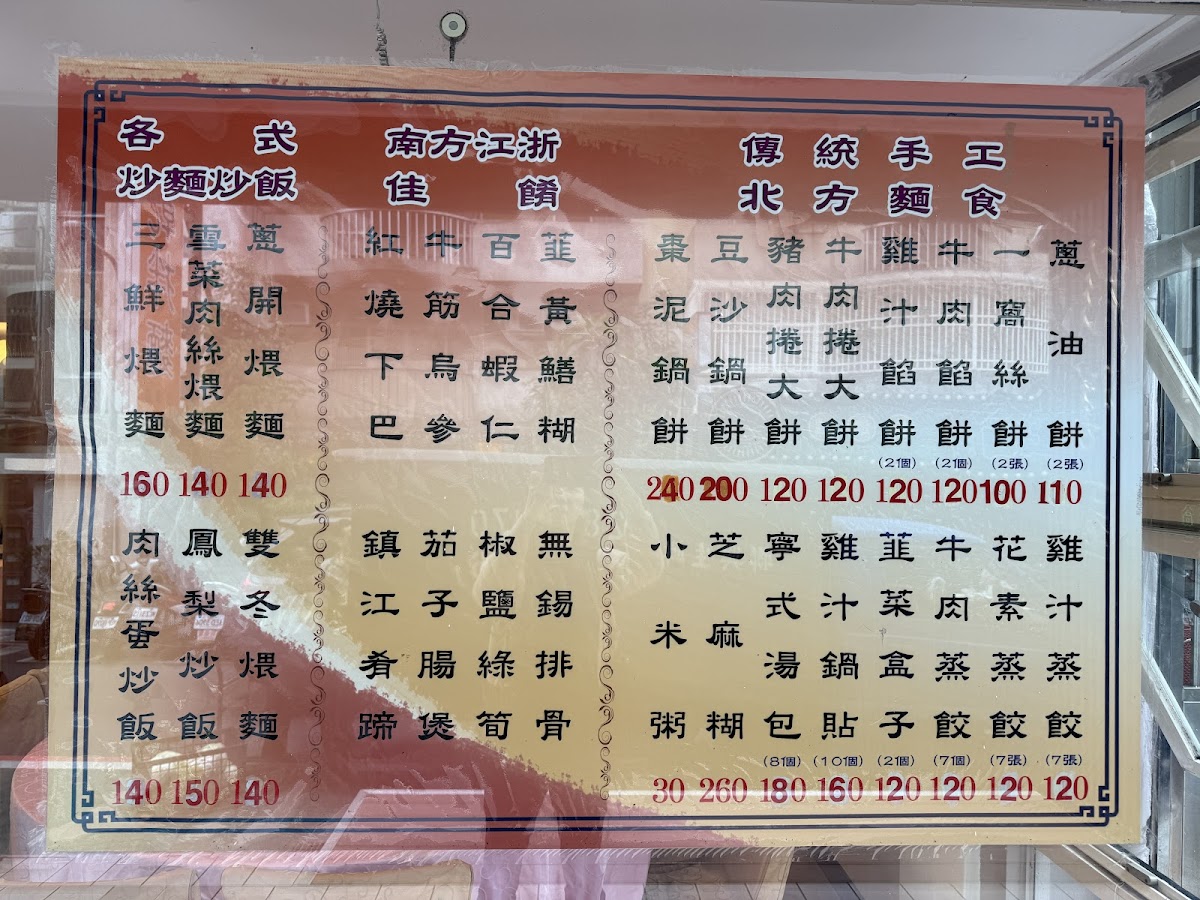 傳統手工
北方麵食
蔥油餅
(2張)
110
一窩絲餅
(2張)
100
牛肉餡餅
(2個)
120
雞汁餡餅
(2個)
120
牛肉捲大餅
120
豬肉捲大餅
120
豆沙鍋餅
200
棗泥鍋餅
240
雞汁蒸餃
(7張)
120
花素蒸餃
(7張)
120
牛肉蒸餃
(7個)
120
韮菜盒子
(2個)
120
雞汁鍋貼
(10個)
160
寧式湯包
(8個)
180
芝麻糊
260
小米粥
30
南方江浙
佳餚
韮黃鱔糊
百合蝦仁
牛筋烏參
紅燒下巴
無錫排骨
椒鹽綠筍
茄子腸煲
鎮江肴蹄
各式
炒麵炒飯
蔥開煨麵
140
雪菜肉絲煨麵
140
三鮮煨麵
160
雙冬煨麵
140
鳳梨炒飯
150
肉絲蛋炒飯
140